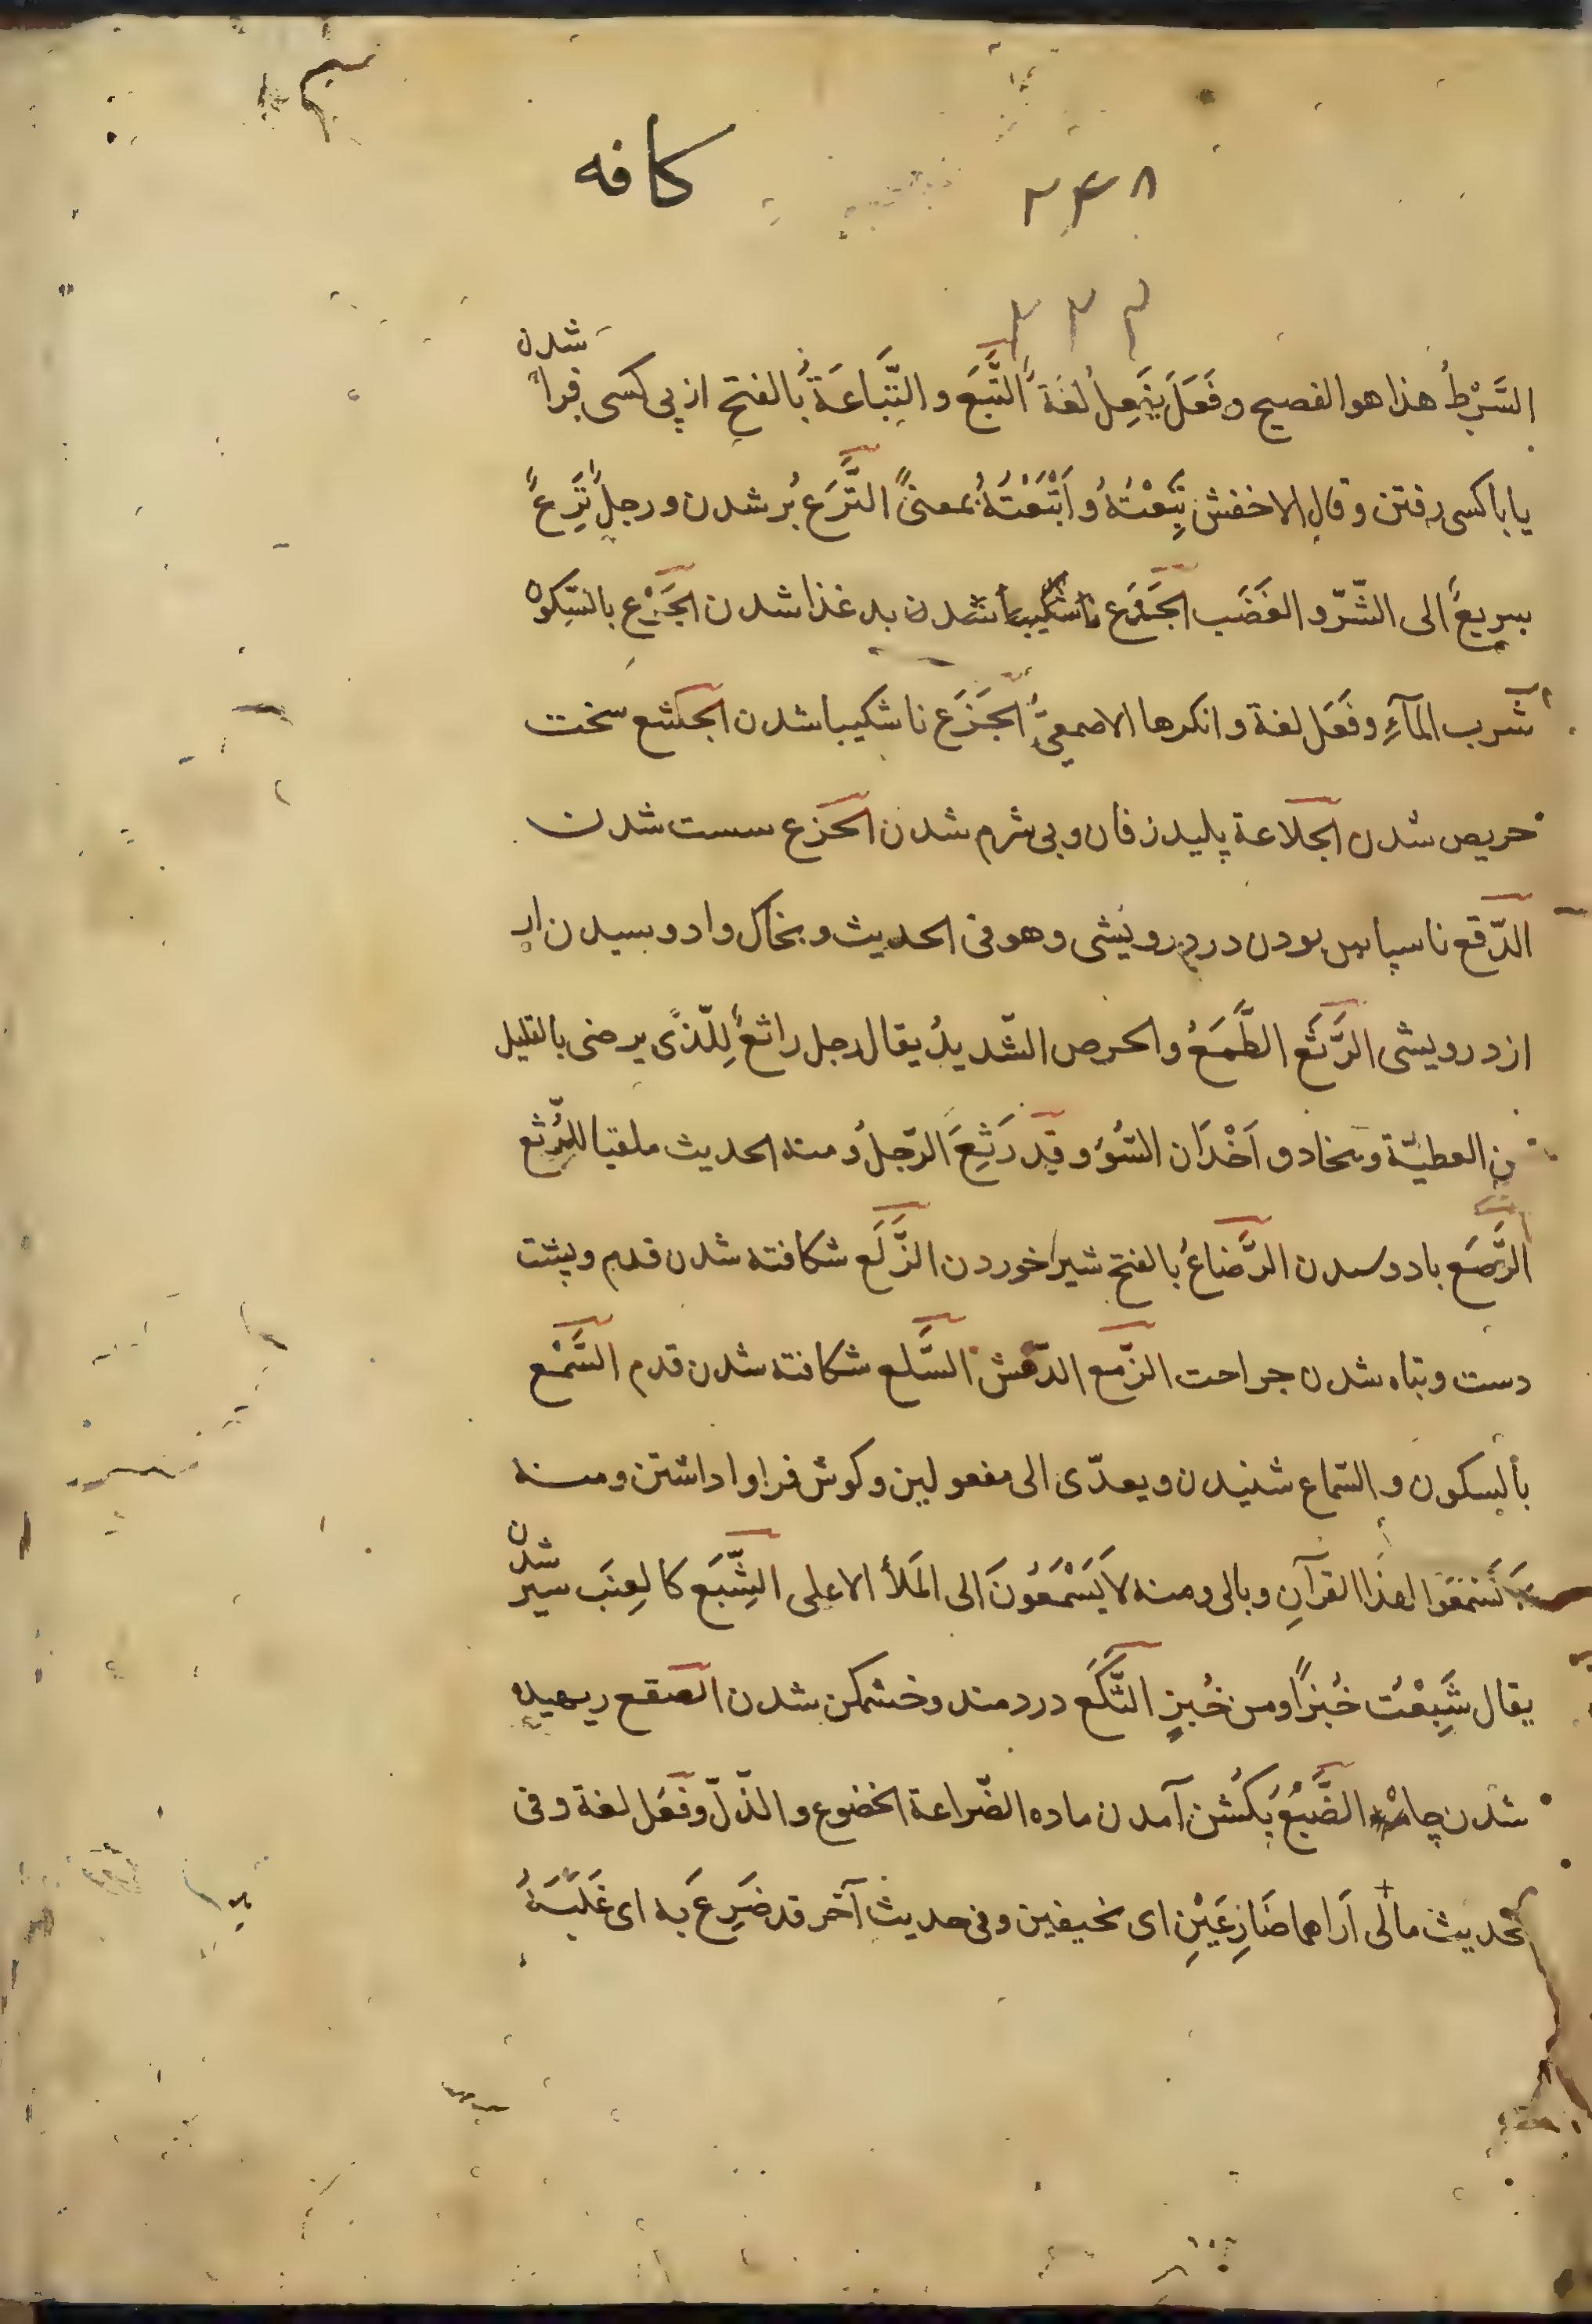 كافه
۲۴۸
۲۳۲
شدن
السَّرْطُ هذا هو الفصيح وفَعَلَ يَفعِلُ لغَةٌ التَّبَع والتَّبَاعَةُ بالفتح از پی کسی فرا
یا با کسی رفتن وقال الاخفش تَبِعْتُهُ وَاَتْبَعْتُهُ بمعنىً التَّرَع پُر شدن ورجلٌ تَرِعٌ
سریعٌ الى الشّرّ والغَضَب الجَدَع بد غذا شدن الجَرْع بالسّكون
شرب المآءِ وفَعَل لغة وانكرها الاصمعىُّ الجَزَع ناشکیبا شدن الجشع سخت
حریص شدن الجلاعة پلید زفان و بی شرم شدن الخرع سست شدن
الدّقع ناسپاس بودن در درویشی وهو فى الحديث و بخاک وادوسیدن
از درویشی الرَّثَع الطَّمَعُ والحرص الشّديدُ يقال رجل راثعٌ لِلّذى يرضى بالقليل
من العطيّة ويخادن اَخْدَان السُّوْء وقد رَثِعَ الرّجلُ ومنه الحديث ملقيا للرَّثع
الرَّصَع بادوسیدن الرَّضاعُ بالفتح شیر خوردن الزَّلَع شکافته شدن قدم و پشت
دست و تباه شدن جراحت الزّمع الدّهش السَّلع شکافته شدن قدم السَّمْع
بالسكون والسّماع شنیدن ويعدّى الى مفعولين وکوش فرا واداشتن ومنه
لا تَسْمَعُوا لهذا القرآنِ وبالى ومنه لاَ يَسْمَعُونَ الى المَلأ الاعلى الشِّبَع كالعِنَب سیر
شدن
يقال شَبِعْتُ خُبزًا ومن خُبزٍ الشَّكَع دردمند و خشمکن شدن الصقع ریهیده
شدن چاه الضَّبَعُ بکُشن آمدن ماده الضّراعة الخضوع والذّلّ وفَعَل لغة وفى
الحديث مالى اَراهما ضَارِعَيْنِ اى نحيفين وفى حديث آخر قد ضَرِعَ به اى غَلَبَهُ